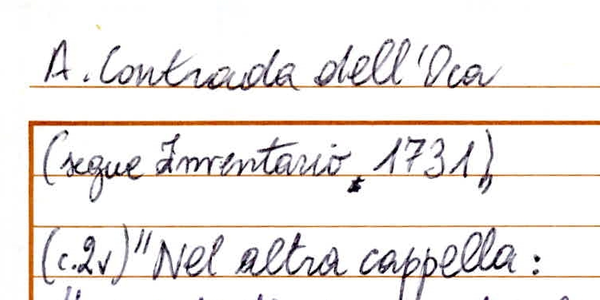 A. Contrada dell'Oca
(segue Inventario, 1731)
(c.2v) "Nel altra cappella: